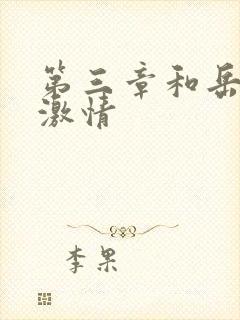 第三章和岳
激情
李果